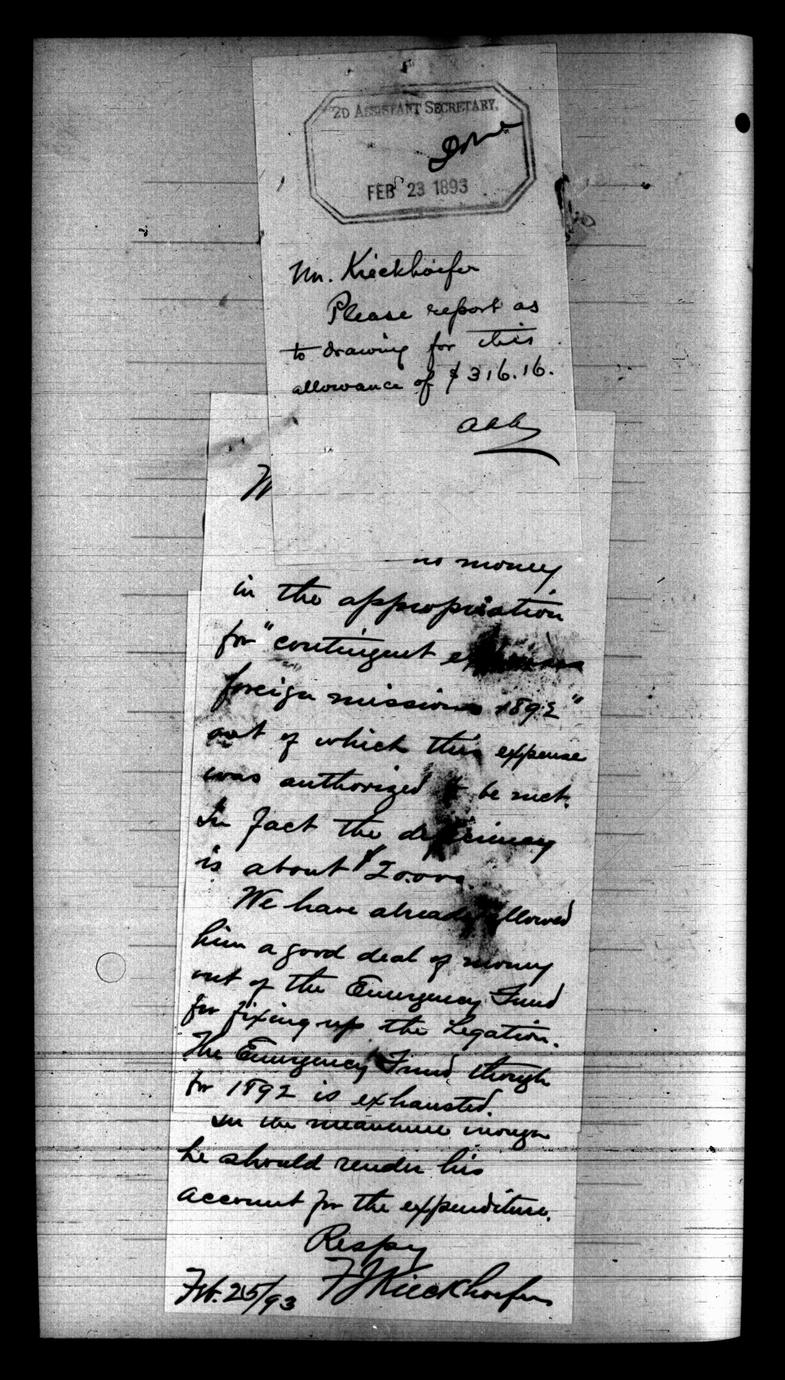 2D ASSISTANT SECRETARY,
Done
FEB 23 1893
Mr. Kieckhoefer
Please report as
to drawing for this
allowance of $316.16.
no money
in the appropriation
for "contingent expenses
foreign missions 1892"
out of which this expense
was authorized to be met.
In fact the deficiency
is about $2000
We have already allowed
him a good deal of money
out of the Emergency Fund
for fixing up the Legation.
The Emergency Fund, though
for 1892 is exhausted.
In the meantime though
he should render his
account for the expenditure.
Respy
F J Kieckhoefer
Feb. 25/93